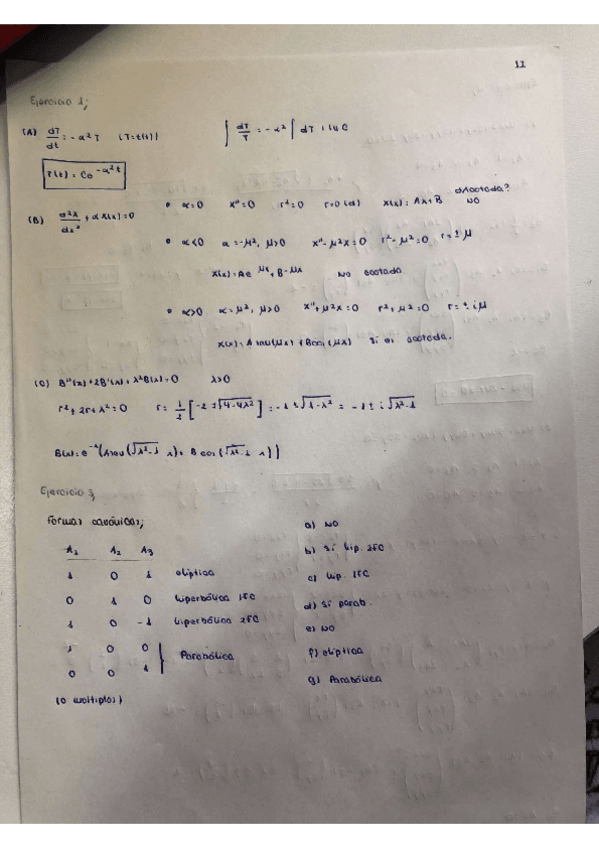 11
Ejercicio 1;
(A) dT/dt = -α² T (T=t(t)) ∫ dT/T = -α² ∫ dT + ln C
T(t) = C e^{-α² t}
¿Acotada?
• α=0 X''=0 r²=0 r=0 (d) X(x) = Ax+B NO
(B) d²X/dx² + α X(x) = 0
• α<0 α=-μ², μ>0 X''-μ²X=0 r²-μ²=0 r=±μ
X(x) = Ae^{μx} + B^{-μx} No acotada
• α>0 α=μ², μ>0 X''+μ²X=0 r²+μ²=0 r=±iμ
X(x) = A sen(μx) + B cos(μx) Sí es acotada.
(C) B''(x)+2B'(x)+λ²B(x)=0 λ>0
r²+2r+λ²=0 r= 1/2 [-2±√(4-4λ²)] = -1±√(1-λ²) = -1±i√(λ²-1)
B(x) = e^{-x}(A sen(√(λ²-1) x) + B cos(√(λ²-1) x))
Ejercicio 3;
Formas canónicas;
A₁ A₂ A₃
1 0 1 elíptica
0 1 0 hiperbólica 1FC
1 0 -1 hiperbólica 2FC
1 0 0
0 0 1 } Parabólica
(o múltiplos)
a) NO
b) Sí hip. 2FC
c) hip. 1FC
d) Sí parab.
e) NO
f) elíptica
g) Parabólica